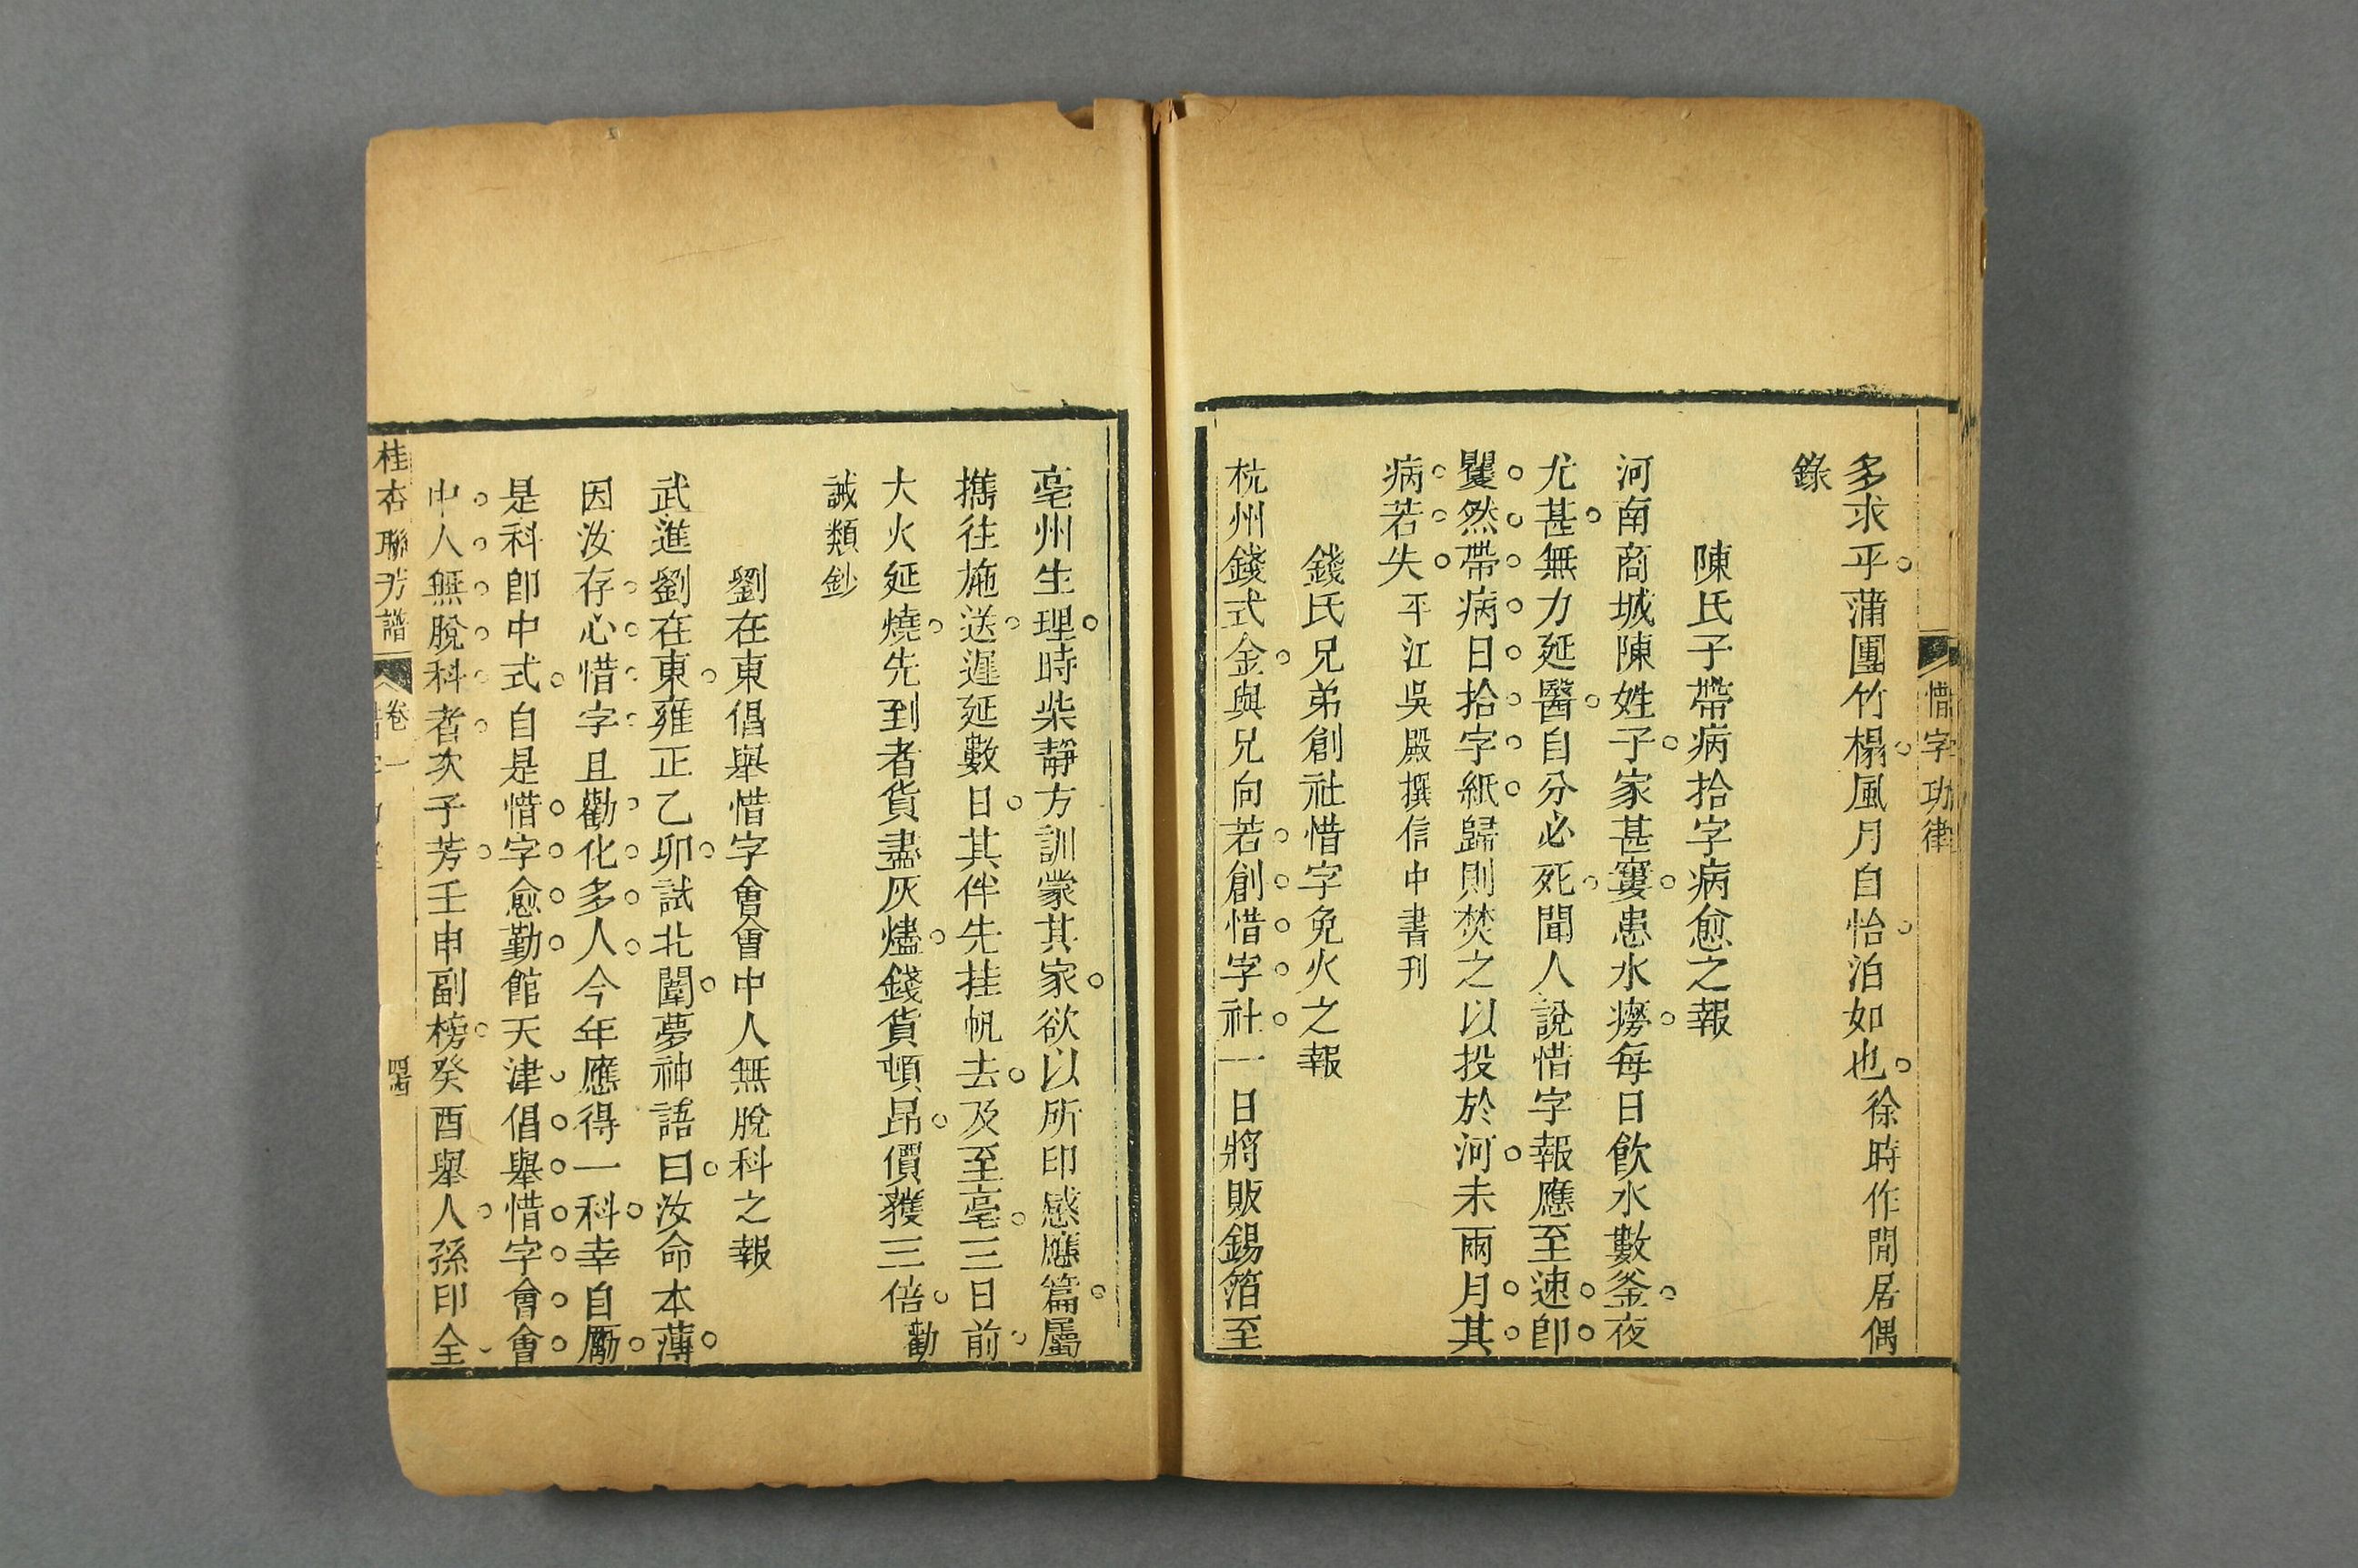 惜字功律
多求乎蒲團竹榻風月自怡泊如也徐時作閒居偶
錄
陳氏子帶病拾字病愈之報
河南商城陳姓子家甚窶患水癆每日飮水數釜夜
尤甚無力延醫自分必死聞人說惜字報應至速卽
矍然帶病日拾字紙歸則焚之以投於河未兩月其
病若失平江吳殿撰信中書刊
錢氏兄弟創社惜字免火之報
杭州錢式金與兄向若創惜字社一日將販錫箔至
亳州生理時柴靜方訓蒙其家欲以所印感應篇屬
攜往施送遲延數日其伴先挂帆去及至亳三日前
大火延燒先到者貨盡灰燼錢貨頓昂價獲三倍勸
誡類鈔
劉在東倡舉惜字會會中人無脫科之報
武進劉在東雍正乙卯試北闈夢神語曰汝命本薄
因汝存心惜字且勸化多人今年應得一科幸自勵
是科卽中式自是惜字愈勤館天津倡舉惜字會會
中人無脫科者次子芳壬申副榜癸酉舉人孫印全
桂杏聯芳譜
卷一